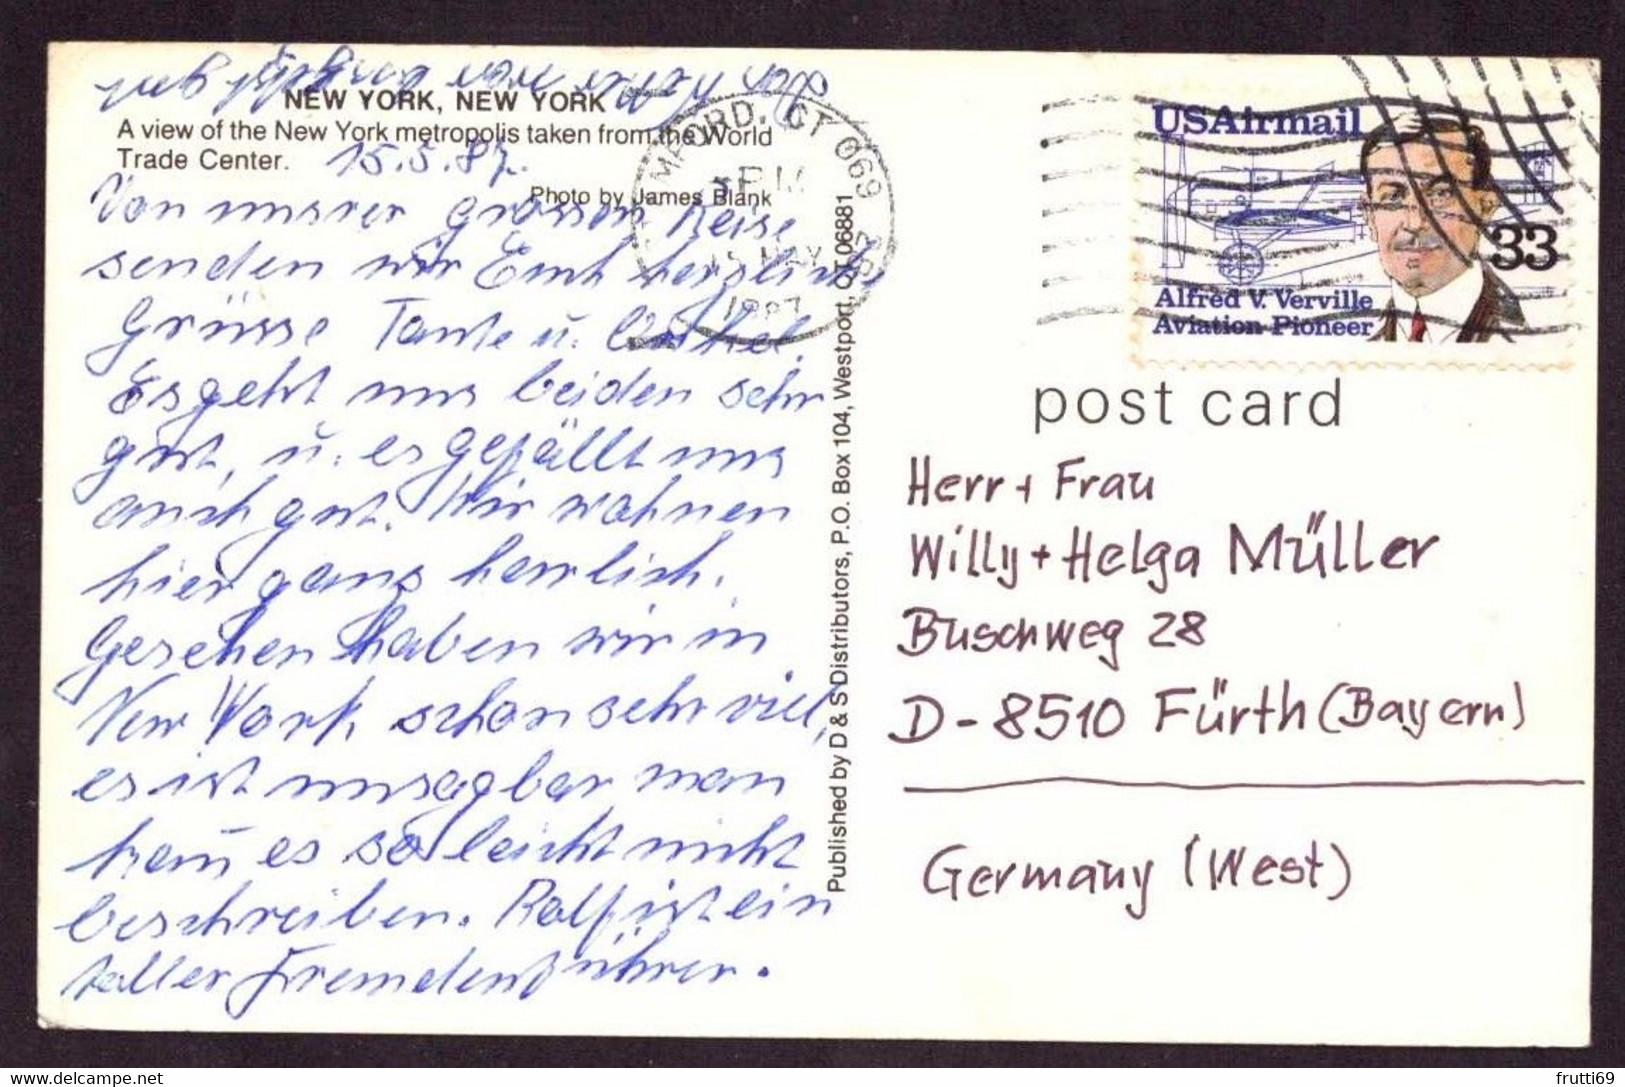 NEW YORK, NEW YORK
A view of the New York metropolis taken from the World
Trade Center.
15.5.87.
Photo by James Blank
Von unsrer grossen Reise
senden wir Euch herzliche
Grüsse Tante u. Onkel
Es geht uns beiden sehr
gut, u. es gefällt uns
auch gut. Wir wohnen
hier ganz herrlich.
Gesehen haben wir in
New York schon sehr viel,
es ist unsagbar man
kann es so leicht nicht
beschreiben. Ralf ist ein
toller Fremdenführer.
Published by D & S Distributors, P.O. Box 104, Westport, CT 06881
MFORD, CT 069
PM
15 MAY
1987
USAirmail
33
Alfred V. Verville
Aviation Pioneer
post card
Herr + Frau
Willy + Helga Müller
Buschweg 28
D-8510 Fürth (Bayern)
Germany (West)
frutti69